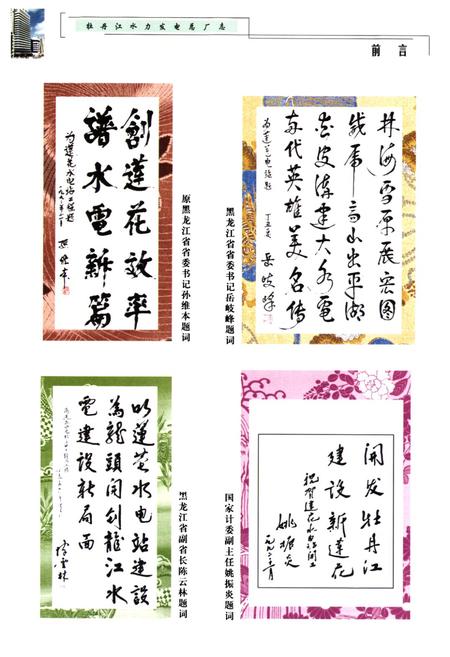 牡丹江水力发电总厂志
前言
創蓮花效率
譜水電新篇
为莲花水电站工程题
孙维本
原黑龙江省省委书记孙维本题词
林海雪原展宏图
截断高山出平湖
建大水電
各代英雄美名传
丁丑夏
岳岐峰
黑龙江省省委书记岳岐峰题词
以莲花水电站建設
為龍頭開創龍江水
電建設新局面
陈雲林
黑龙江省副省长陈云林题词
開发牡丹江
建设新莲花
祝贺莲花水电站开工
姚振炎
一九九二
国家计委副主任姚振炎题词